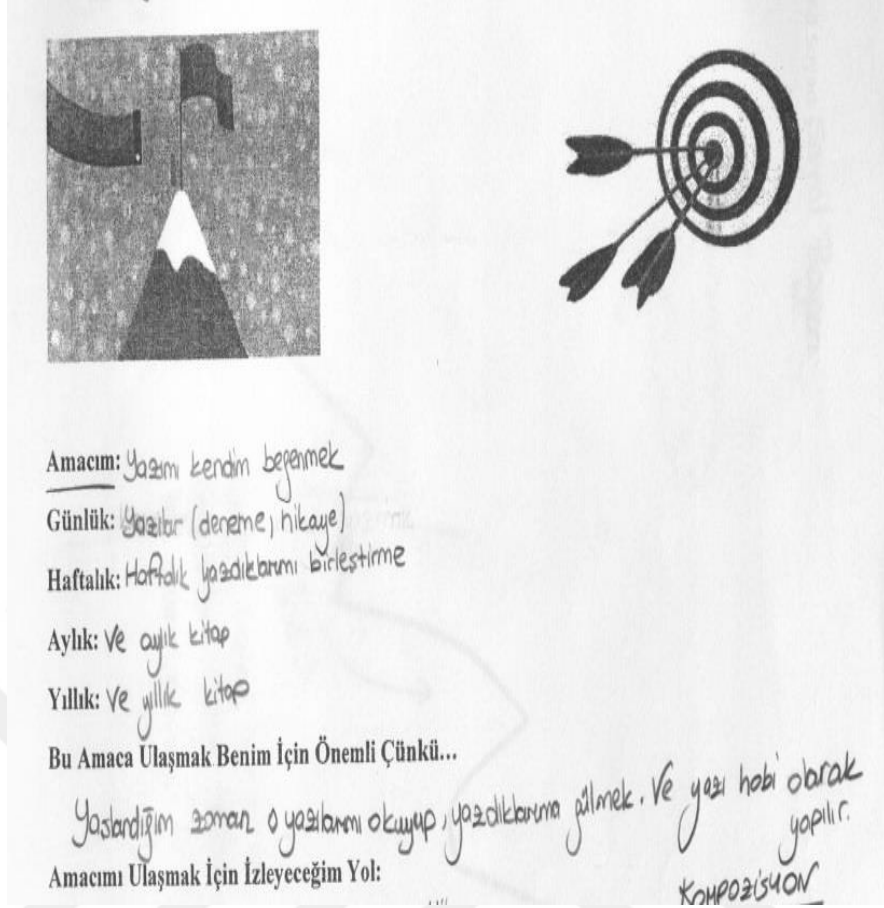 Amacım: Yazımı kendim beğenmek
Günlük: Yazılar (deneme, hikaye)
Haftalık: Haftalık yazdıklarımı birleştirme
Aylık: Ve aylık kitap
Yıllık: Ve yıllık kitap
Bu Amaca Ulaşmak Benim İçin Önemli Çünkü...
Yaşlandığım zaman o yazılarımı okuyup, yazdıklarıma gülmek. Ve yazı hobi olarak
yapılır.
Amacımı Ulaşmak İçin İzleyeceğim Yol:
KOMPOZİSYON